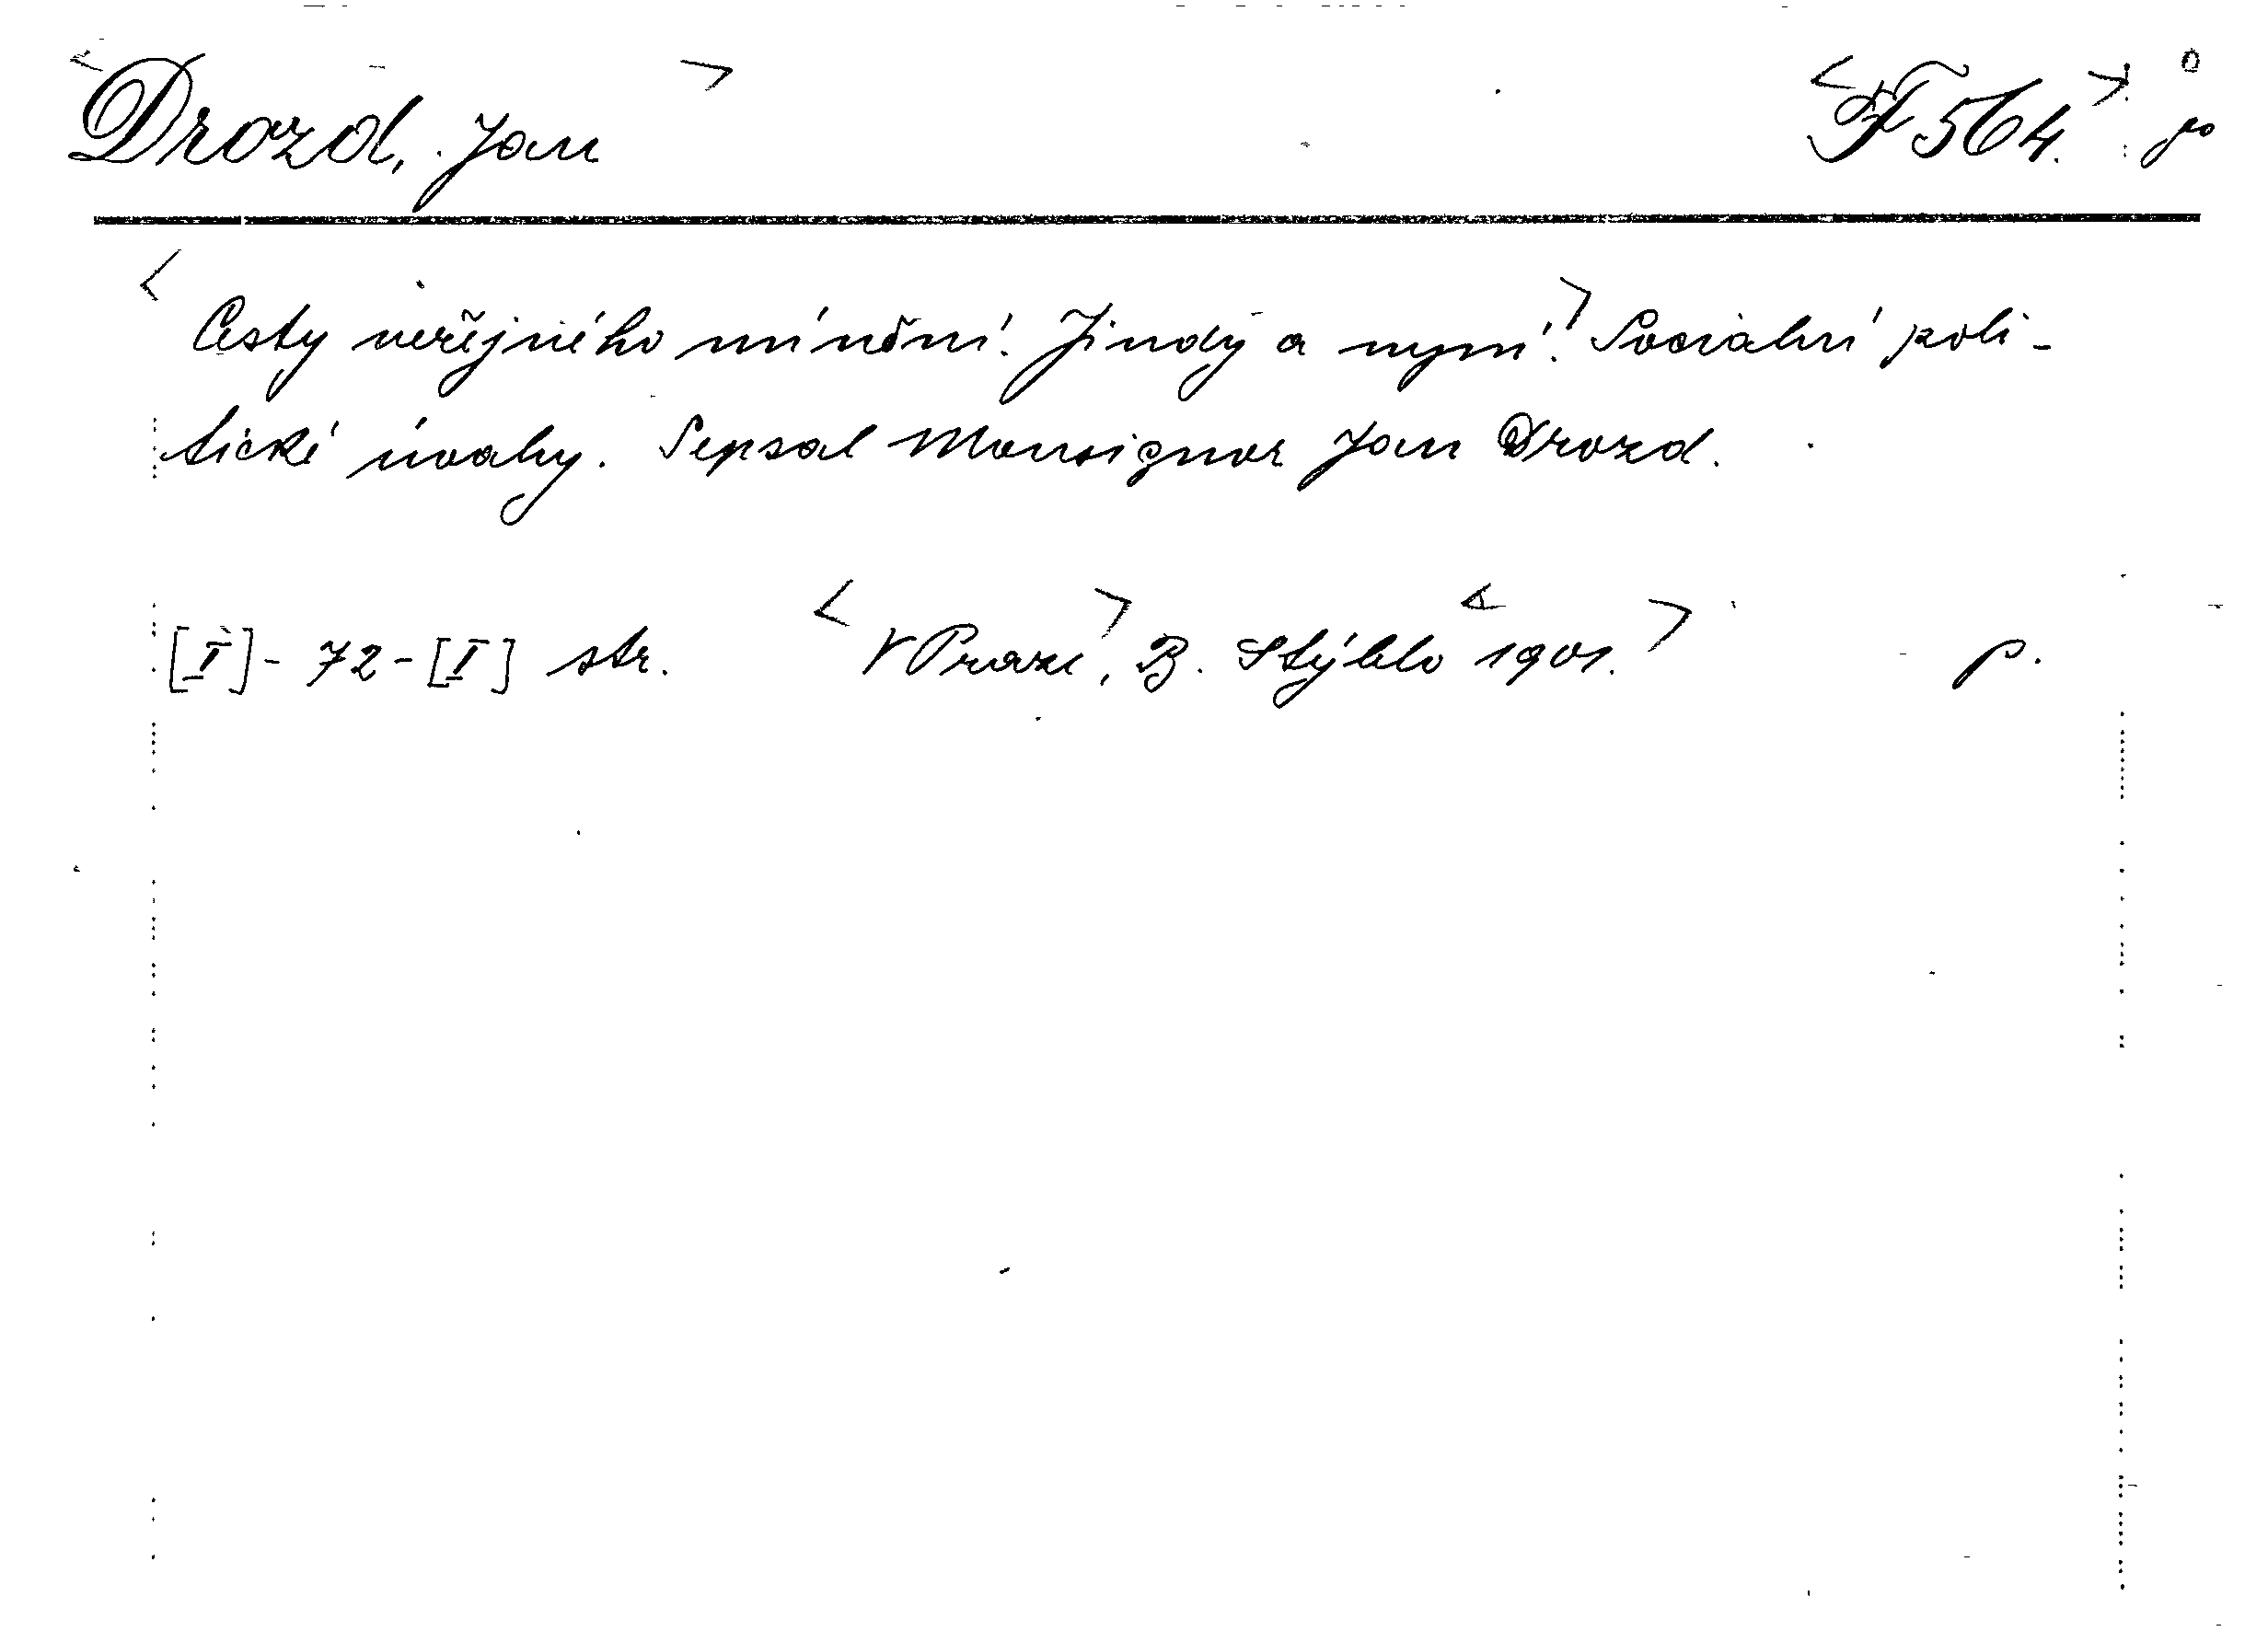 <Drozd, Jan> <F 564.>
<Cesty veřejného mínění. Jindy a nyní.> Sociální poli-
tické úvahy. Sepsal Monsignor Jan Drozd.
[I]-72-[I] str. <V Praze>, B. Stýblo <1901.> p.